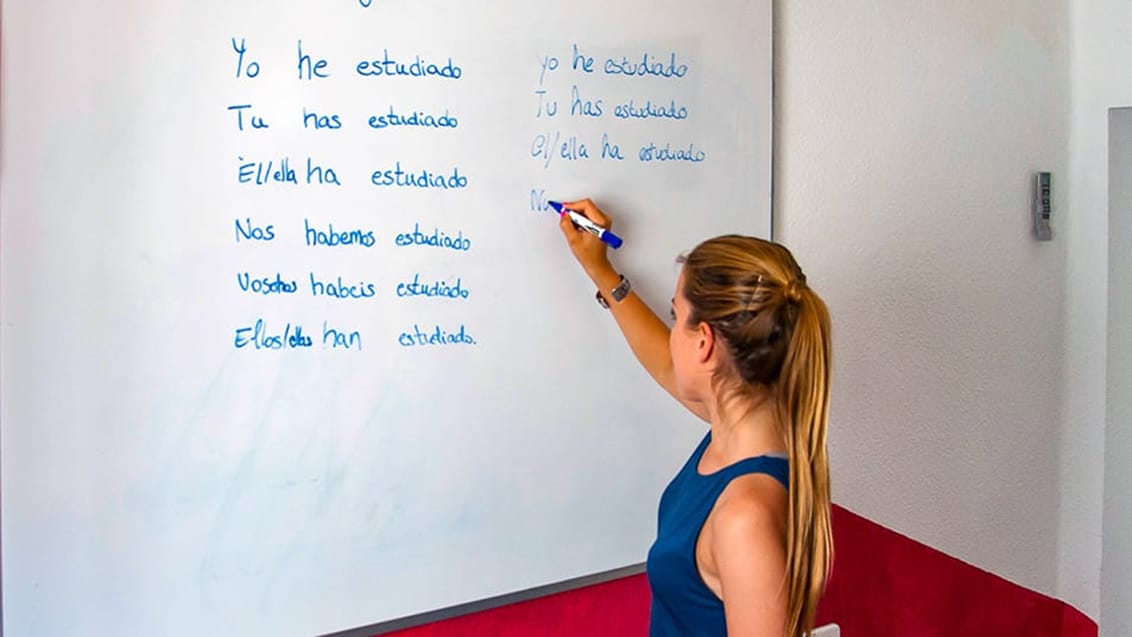 Yo he estudiado
Tu has estudiado
Él/ella ha estudiado
Nos habemos estudiado
Vosotros habeis estudiado
Ellos/ellas han estudiado.
yo he estudiado
Tu has estudiado
él/ella ha estudiado
No